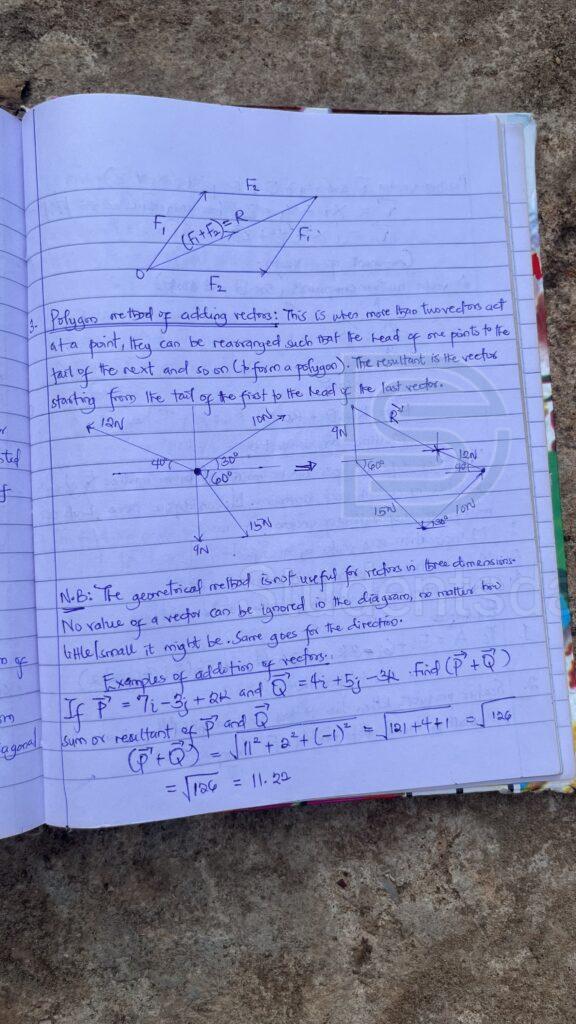 F2
F1
(F1+F2)=R
F1
O
F2
3. Polygon method of adding vectors: This is when more than two vectors act
at a point, they can be rearranged such that the head of one points to the
tail of the next and so on (to form a polygon). The resultant is the vector
starting from the tail of the first to the head of the last vector.
12N
10N
40°
30°
60°
15N
9N
⇒
R
9N
60°
12N
40°
15N
10N
30°
N.B: The geometrical method is not useful for vectors in three dimensions.
No value of a vector can be ignored in the diagram, no matter how
little/small it might be. Same goes for the direction.
Examples of addition of vectors.
If P = 7i - 3j + 2k and Q = 4i + 5j - 3k . Find (P + Q)
sum or resultant of P and Q
(P + Q) = √11² + 2² + (-1)² = √121 + 4 + 1 = √126
= √126 = 11.22